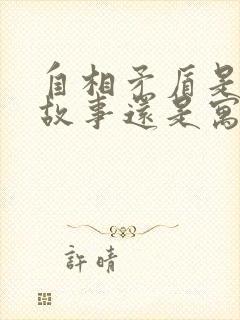 自相矛盾是
故事還是寓
許晴